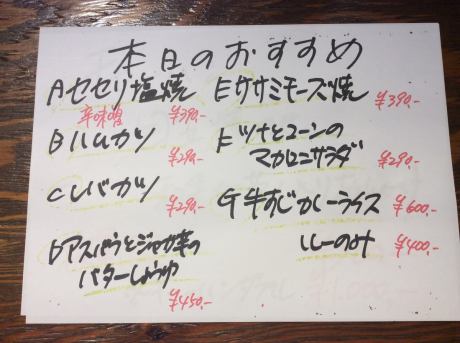 本日のおすすめ
Aセセリ塩焼
辛味噌 ¥390.-
Bハムカツ
¥290.-
Cレバカツ
¥290.-
Dアスパラとジャガ芋の
バターしょうゆ
¥450.-
Eササミチーズ焼 ¥390.-
Fツナとコーンの
マカロニサラダ ¥290.-
G牛すじカレーライス ¥600.-
ルーのみ ¥400.-